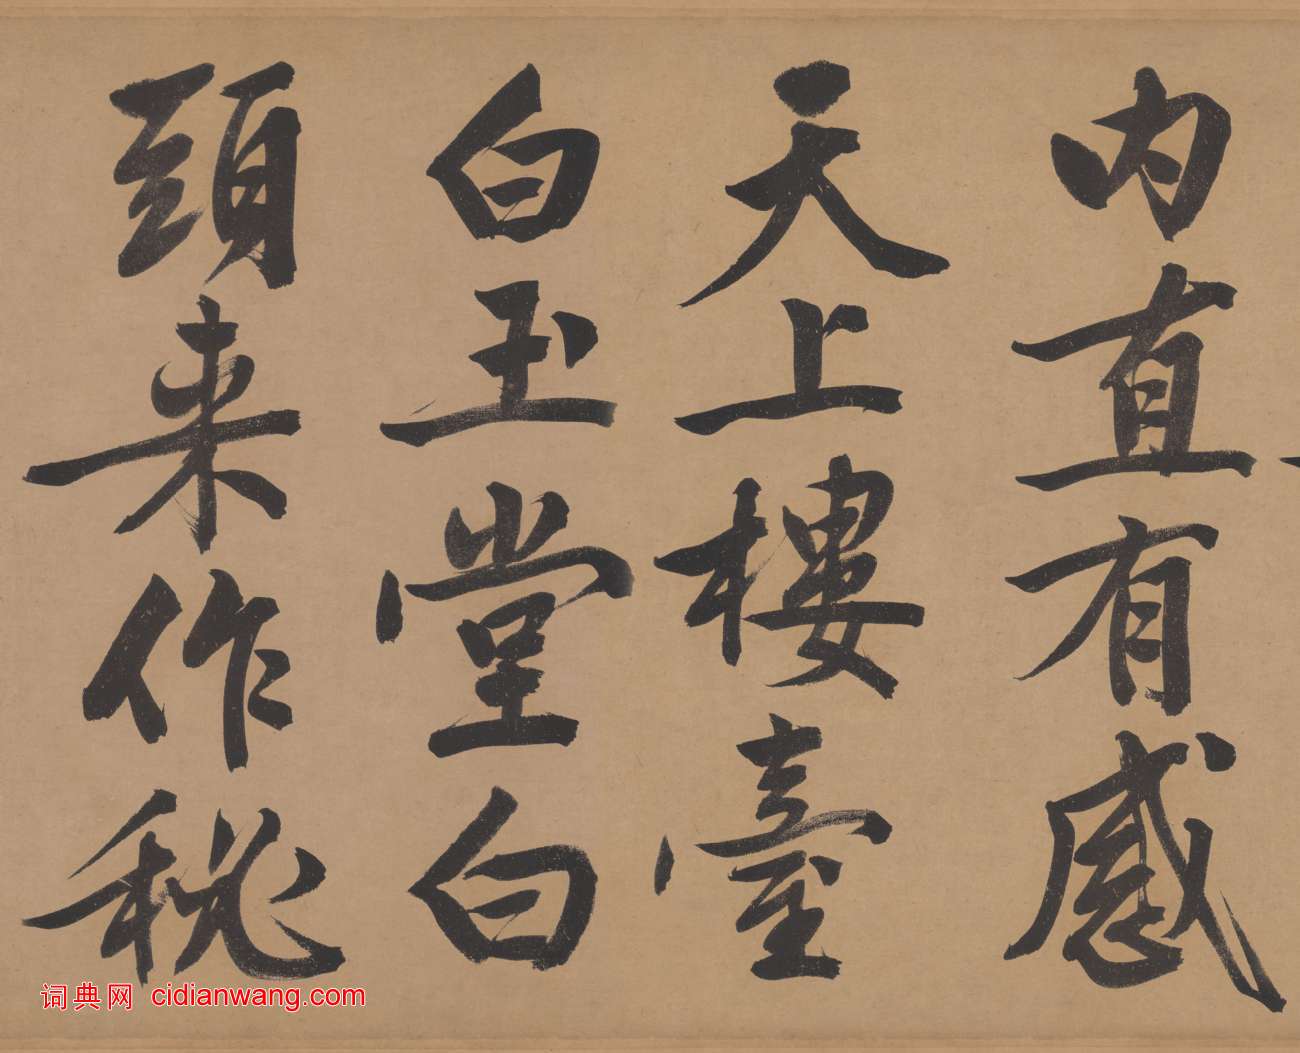 内直有感
天上樓臺
白玉堂白
頭来作秘
词典网 cidianwang.com